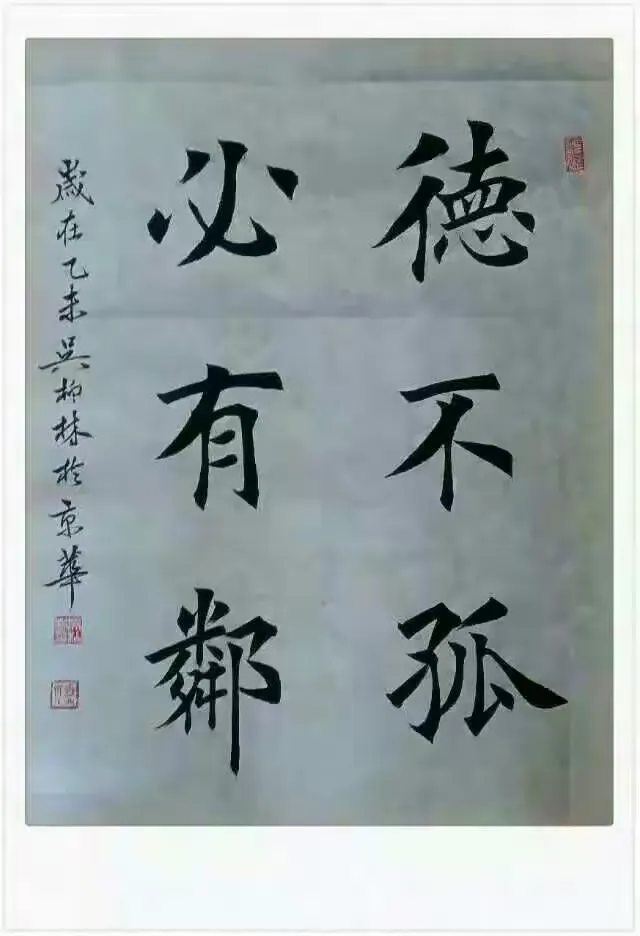 德不孤
必有鄰
歲在乙未吳柳林於京華